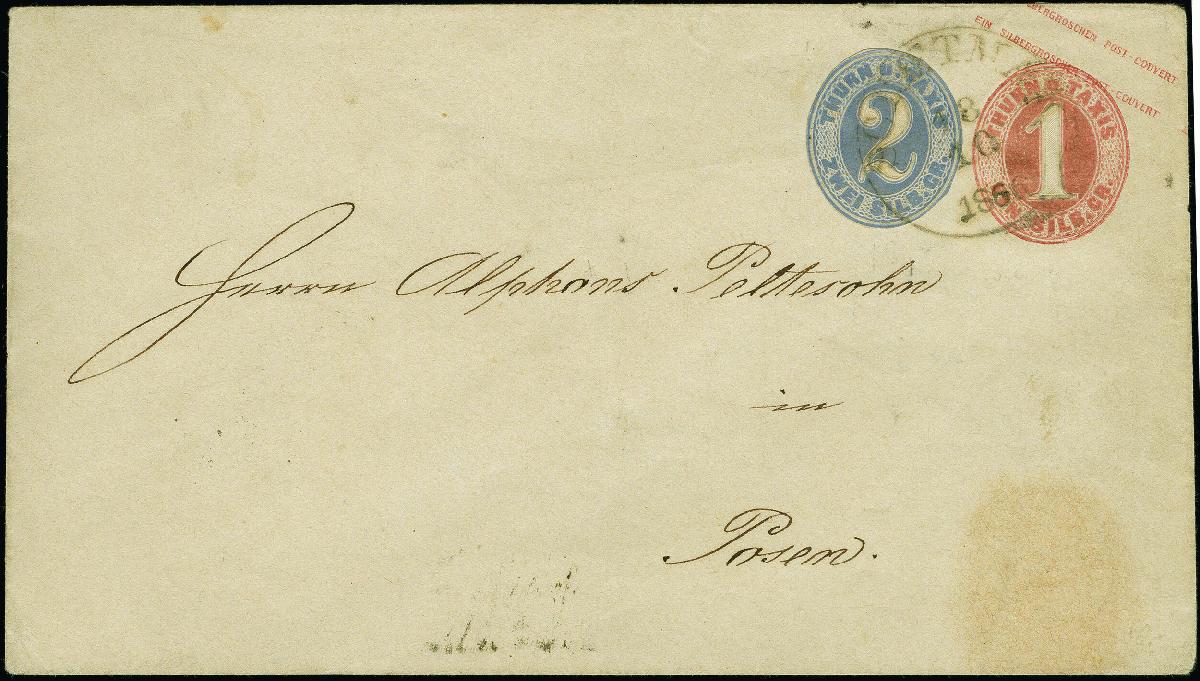 SILBERGROSCHEN POST-COUVERT
EIN SILBERGROSCHEN POST-COUVERT
THURN U. TAXIS
2
ZWEI SILB. GR.
THURN U. TAXIS
1
SILB. GR.
8
10
Herrn Alphons Peltesohn
in
Posen.